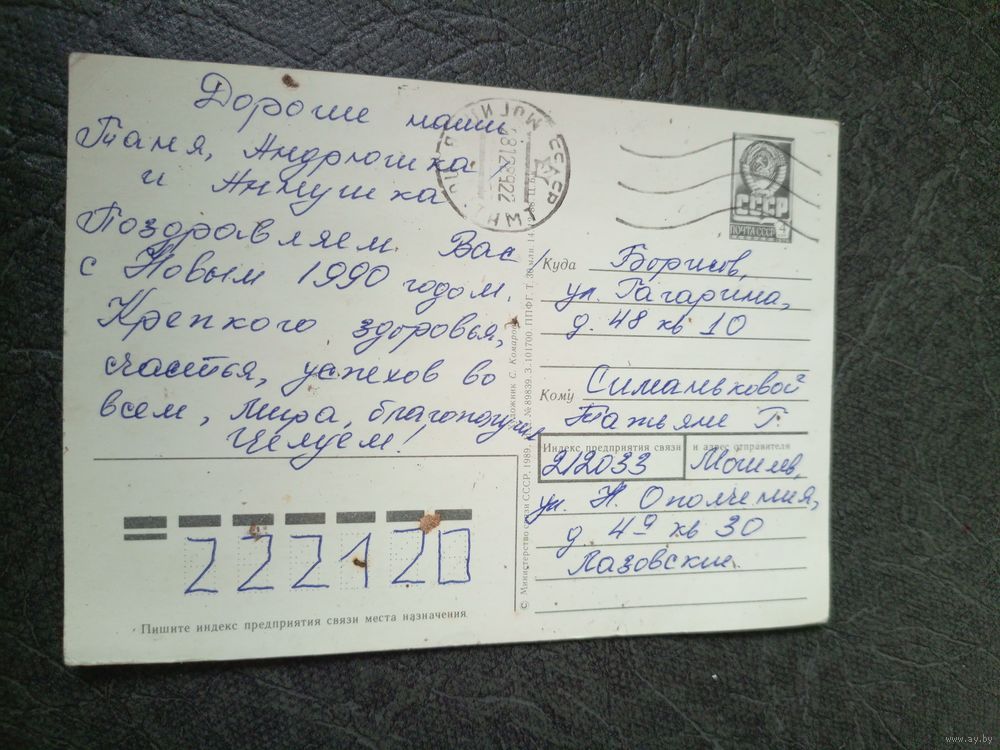 Дорогие наши
Таня, Андрюшка
и Аннушка.
Поздравляем Вас
с Новым 1990 годом.
Крепкого здоровья,
счастья, успехов во
всем, мира, благополучия
Целуем!
СССР
ПОЧТА СССР
4
СССР
Куда Борисов,
ул. Гагарина,
д. 48 кв 10
Кому Симаньковой
Татьяне Г.
Индекс предприятия связи и адрес отправителя
212033 Могилев,
ул. Н. Ополчения,
д. 4а кв 30
Лазовские.
222120
Пишите индекс предприятия связи места назначения
© Министерство связи СССР, 1989.
№ 89839. З. 101700. ППФГ. Т. 30 млн.
www.ay.by